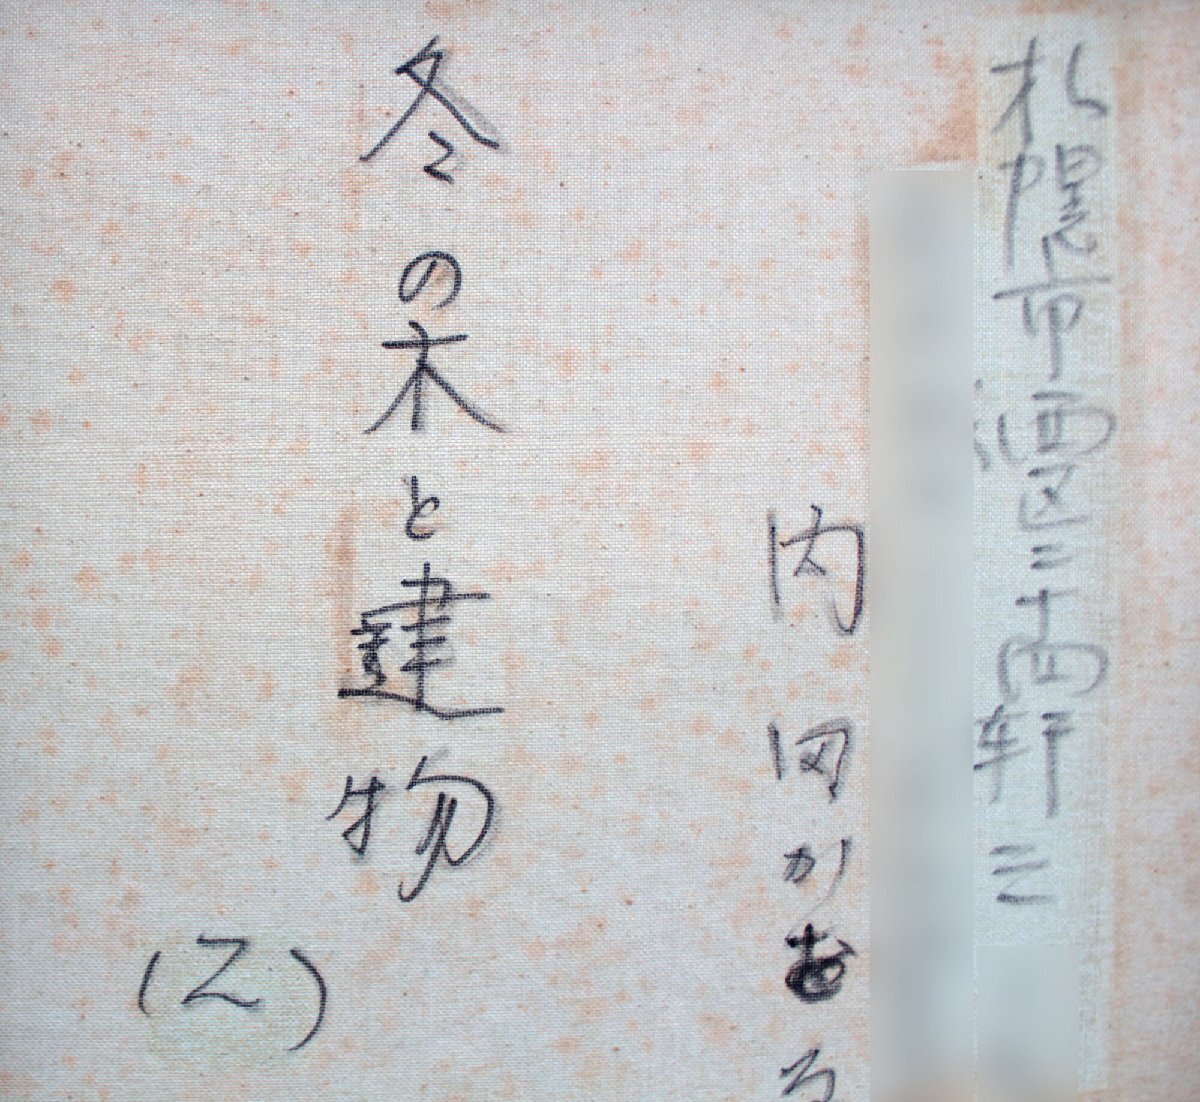 札幌市西区二十四軒三
内田かおる
冬の木と建物
(乙)